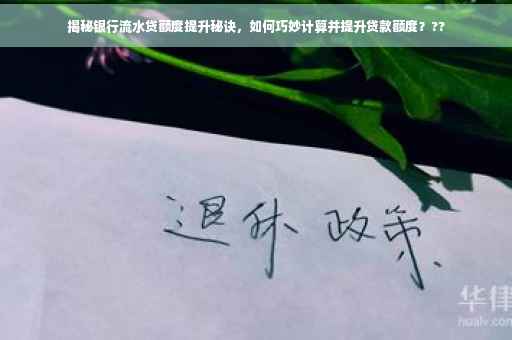 揭秘银行流水贷额度提升秘诀，如何巧妙计算并提升贷款额度？??
退休 政策
华律
hualv.com